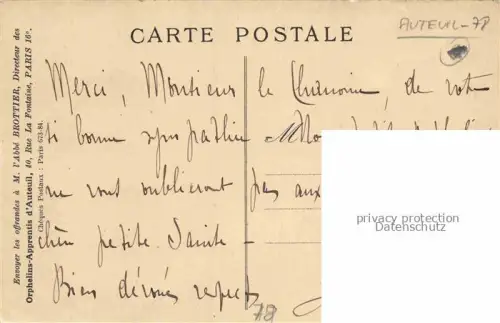 CARTE POSTALE
AUTEUIL - 78
Envoyer les offrandes à M. l'Abbé BROTTIER, Directeur des
Orphelins-Apprentis d'Auteuil, 40, Rue La Fontaine, PARIS 16e.
Chèques Postaux : Paris 653-84.
Merci, Monsieur le Chanoine, de votre
si bonne sympathie
ne vous oublieront pas aux
chère petite Sainte -
Bien dévoués respect
78
privacy protection
Datenschutz